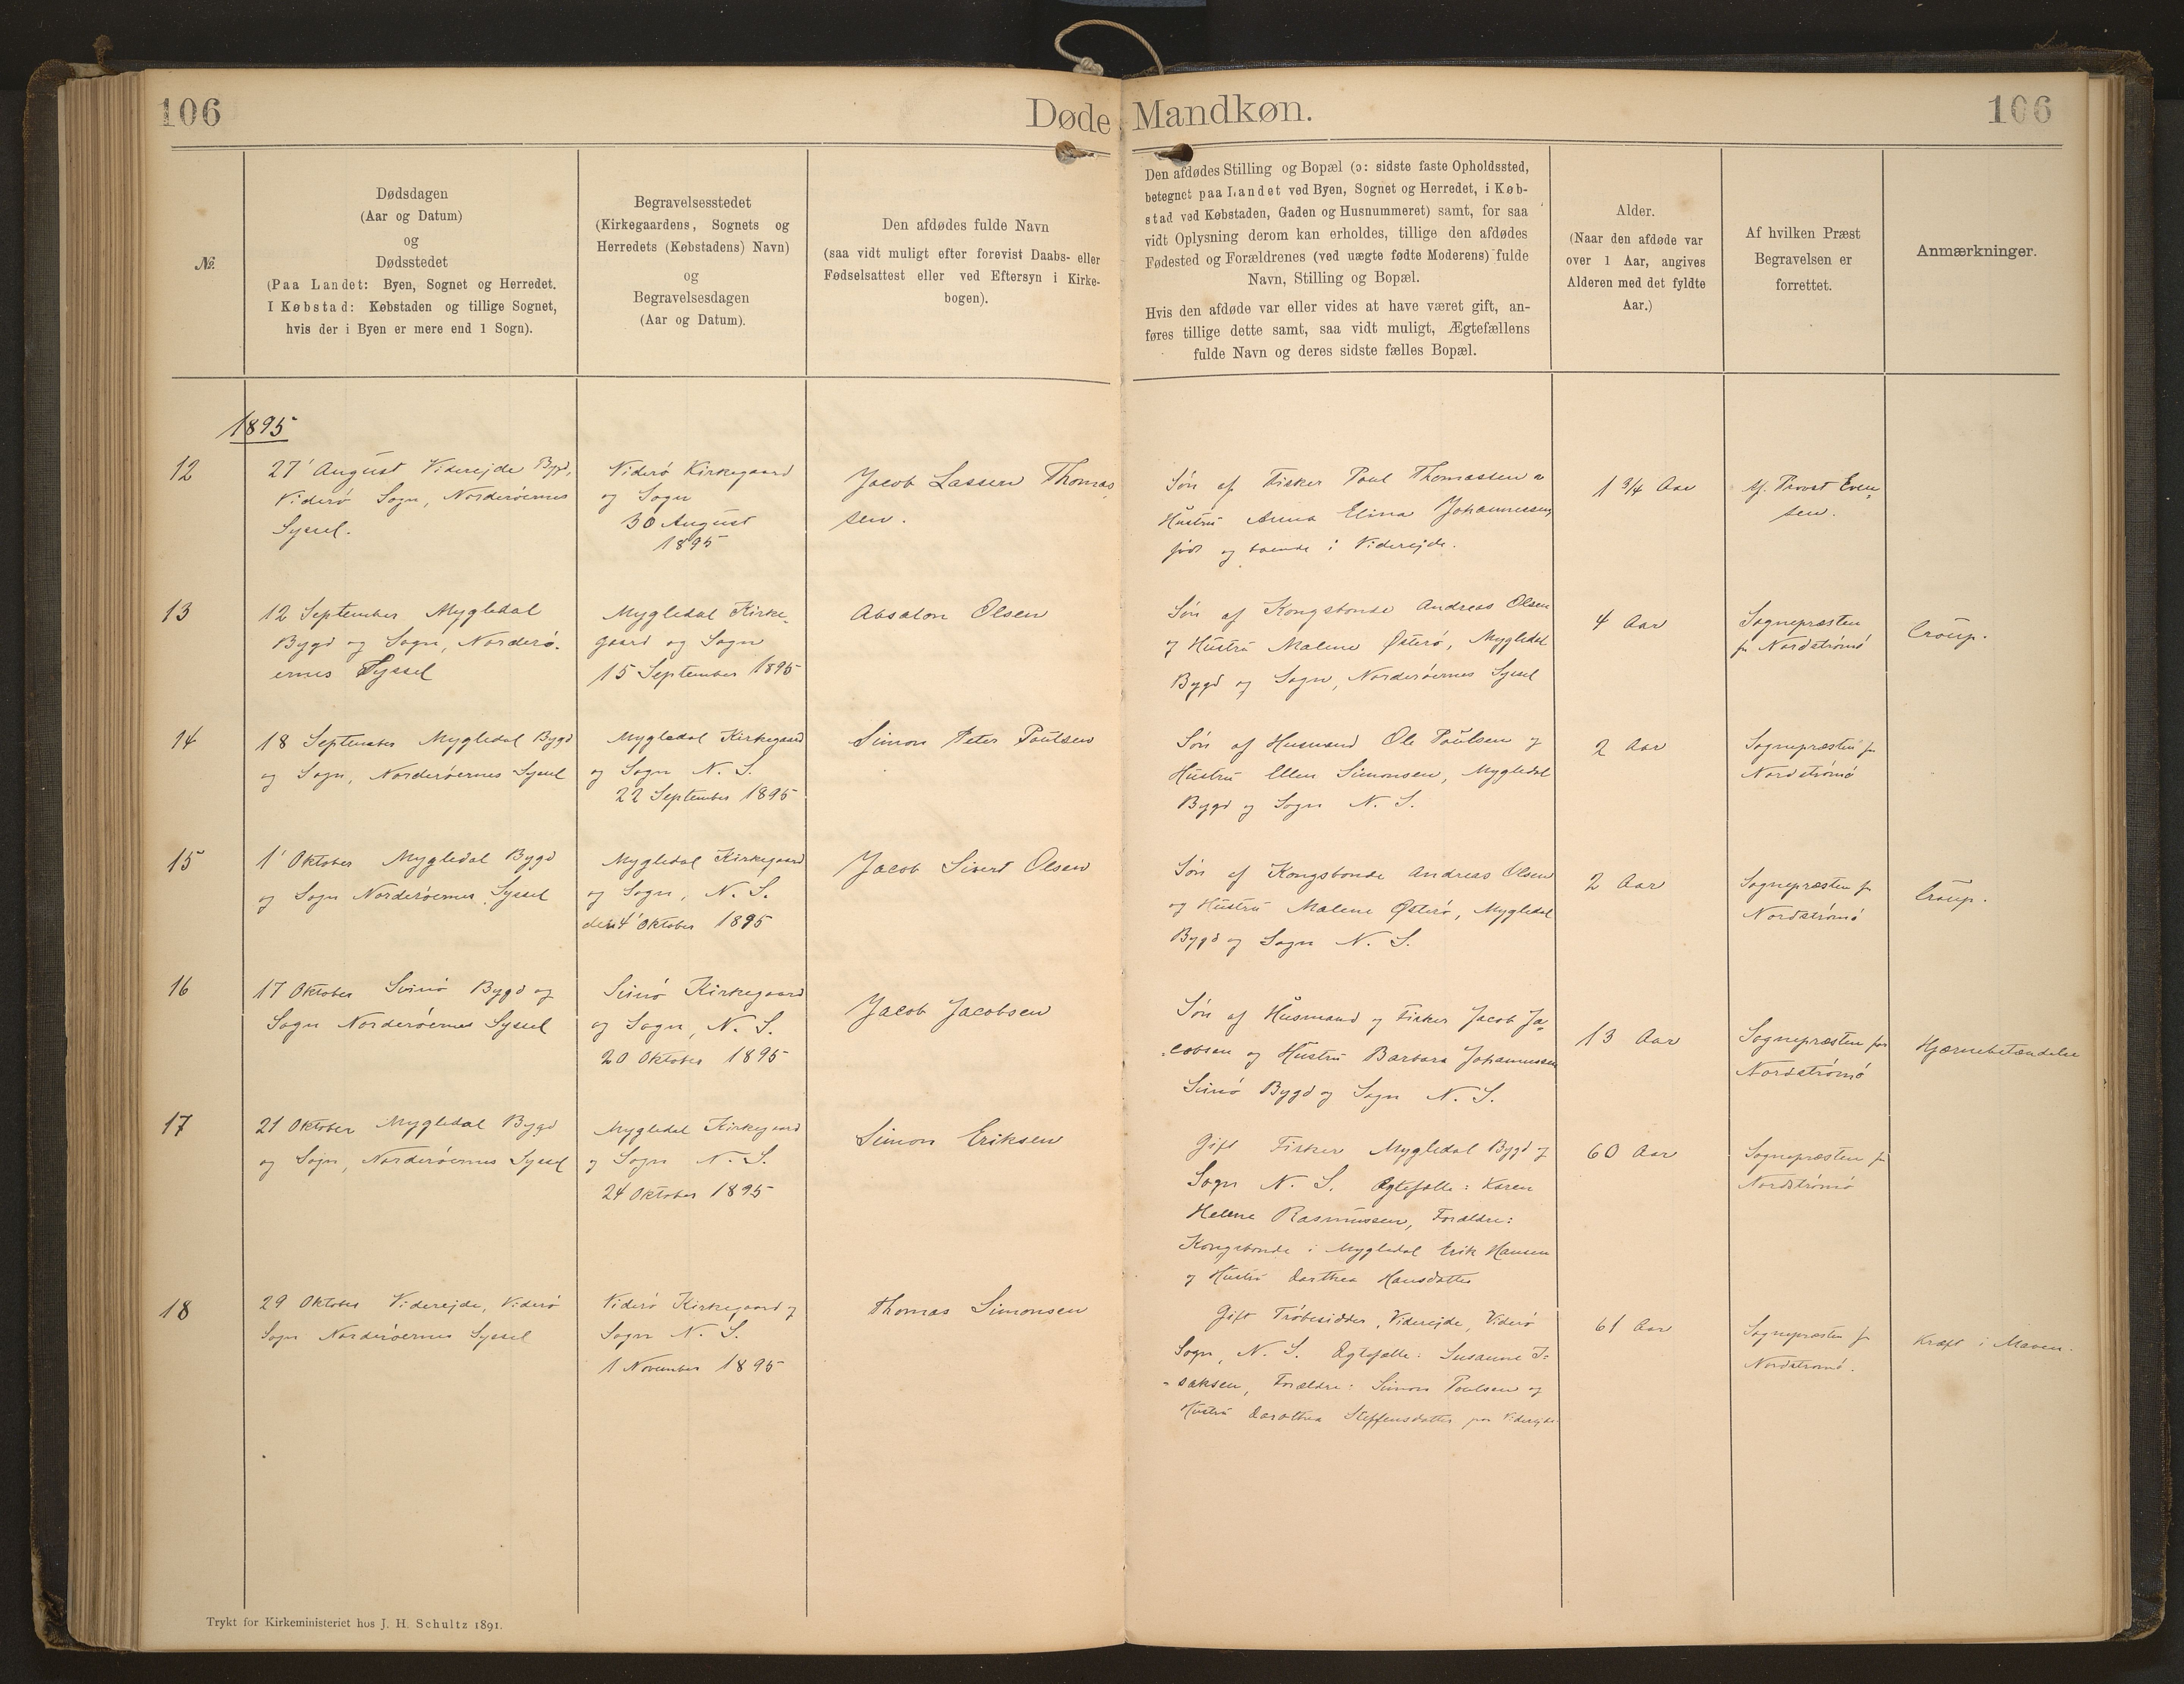 106
Døde Mandkøn.
106
№
Dødsdagen
(Aar og Datum)
og
Dødsstedet
(Paa Landet: Byen, Sognet og Herredet.
I Købstad: Købstaden og tillige Sognet,
hvis der i Byen er mere end 1 Sogn).
Begravelsesstedet
(Kirkegaardens, Sognets og
Herredets (Købstadens) Navn)
og
Begravelsesdagen
(Aar og Datum).
Den afdødes fulde Navn
(saa vidt muligt efter forevist Daabs- eller
Fødselsattest eller ved Eftersyn i Kirke-
bogen).
Den afdødes Stilling og Bopæl (ɔ: sidste faste Opholdssted,
betegnet paa Landet ved Byen, Sognet og Herredet, i Køb-
stad ved Købstaden, Gaden og Husnummeret) samt, for saa
vidt Oplysning derom kan erholdes, tillige den afdødes
Fødested og Forældrenes (ved uægte fødte Moderens) fulde
Navn, Stilling og Bopæl.
Hvis den afdøde var eller vides at have været gift, an-
føres tillige dette samt, saa vidt muligt, Ægtefællens
fulde Navn og deres sidste fælles Bopæl.
Alder.
(Naar den afdøde var
over 1 Aar, angives
Alderen med det fyldte
Aar.)
Af hvilken Præst
Begravelsen er
forrettet.
Anmærkninger.
1895
12
27' August Viderejde Bygd,
Viderø Sogn, Norderøernes
Syssel.
Viderø Kirkegaard
og Sogn
30 August
1895
Jacob Lassen Thomas,
sen.
Søn af Fisker Poul Thomassen o
Hustru Anna Elina Johannesen
født og boende i Viderejde.
1 3/4 Aar
Af. Provst Even,
sen.
13
12 September Mygledal
Bygd og Sogn, Norderø-
ernes Syssel
Mygledal Kirke-
gaard og Sogn
15 September 1895
Absalon Olsen
Søn af Kongsbonde Andreas Olsen
og Hustru Malene Østerø, Mygledal
Bygd og Sogn, Norderøernes Syssel
4 Aar
Sognepræsten
fr Nordstrømø
Croup.
14
18 September Mygledal Bygd
og Sogn, Norderøernes Syssel
Mygledal Kirkegaard
og Sogn N. S.
22 September 1895
Simon Peter Poulsen
Søn af Husmand Ole Poulsen og
Hustru Ellen Simonsen, Mygledal
Bygd og Sogn N. S.
2 Aar
Sognepræsten fr
Nordstrømø
15
1' Oktober Mygledal Bygd
og Sogn Norderøernes Syssel
Mygledal Kirkegaard
og Sogn, N. S.
den 4' Oktober 1895
Jacob Sivert Olsen
Søn af Kongsbonde Andreas Olsen
og Hustru Malene Østerø, Mygledal
Bygd og Sogn N. S.
2 Aar
Sognepræsten fr
Nordstrømø
Croup.
16
17 Oktober Svinø Bygd og
Sogn Norderøernes Syssel
Svinø Kirkegaard
og Sogn, N. S.
20 Oktober 1895
Jacob Jacobsen
Søn af Husmand og Fisker Jacob Ja=
=cobsen og Hustru Barbara Johannessen
Svinø Bygd og Sogn N. S.
13 Aar
Sognepræsten for
Nordstrømø
Hjærnebetændelse
17
21 Oktober Mygledal Bygd
og Sogn, Norderøernes Syssel
Mygledal Kirkegaard
og Sogn N. S.
24 Oktober 1895
Simon Eriksen
Gift Fisker Mygledal Bygd og
Sogn N. S. Ægtefælle: Karen
Helene Rasmussen, Forældre:
Kongsbonde i Mygledal Erik Hansen
og Hustru Dorthea Hansdatter
60 Aar
Sognepræsten fr
Nordstrømø
18
29 Oktober Viderejde, Viderø
Sogn Norderøernes Syssel
Viderø Kirkegaard og
Sogn N. S.
1 November 1895
Thomas Simonsen
Gift Trøbesidder, Viderejde, Viderø
Sogn, N. S. Ægtefælle: Susanne I=
=saksen, Forældre: Simon Poulsen og
Hustru Dorothea Steffensdatter paa Viderejde
61 Aar
Sognepræsten fr
Nordstrømø.
Kræft i Maven.
Trykt for Kirkeministeriet hos J. H. Schultz 1891.